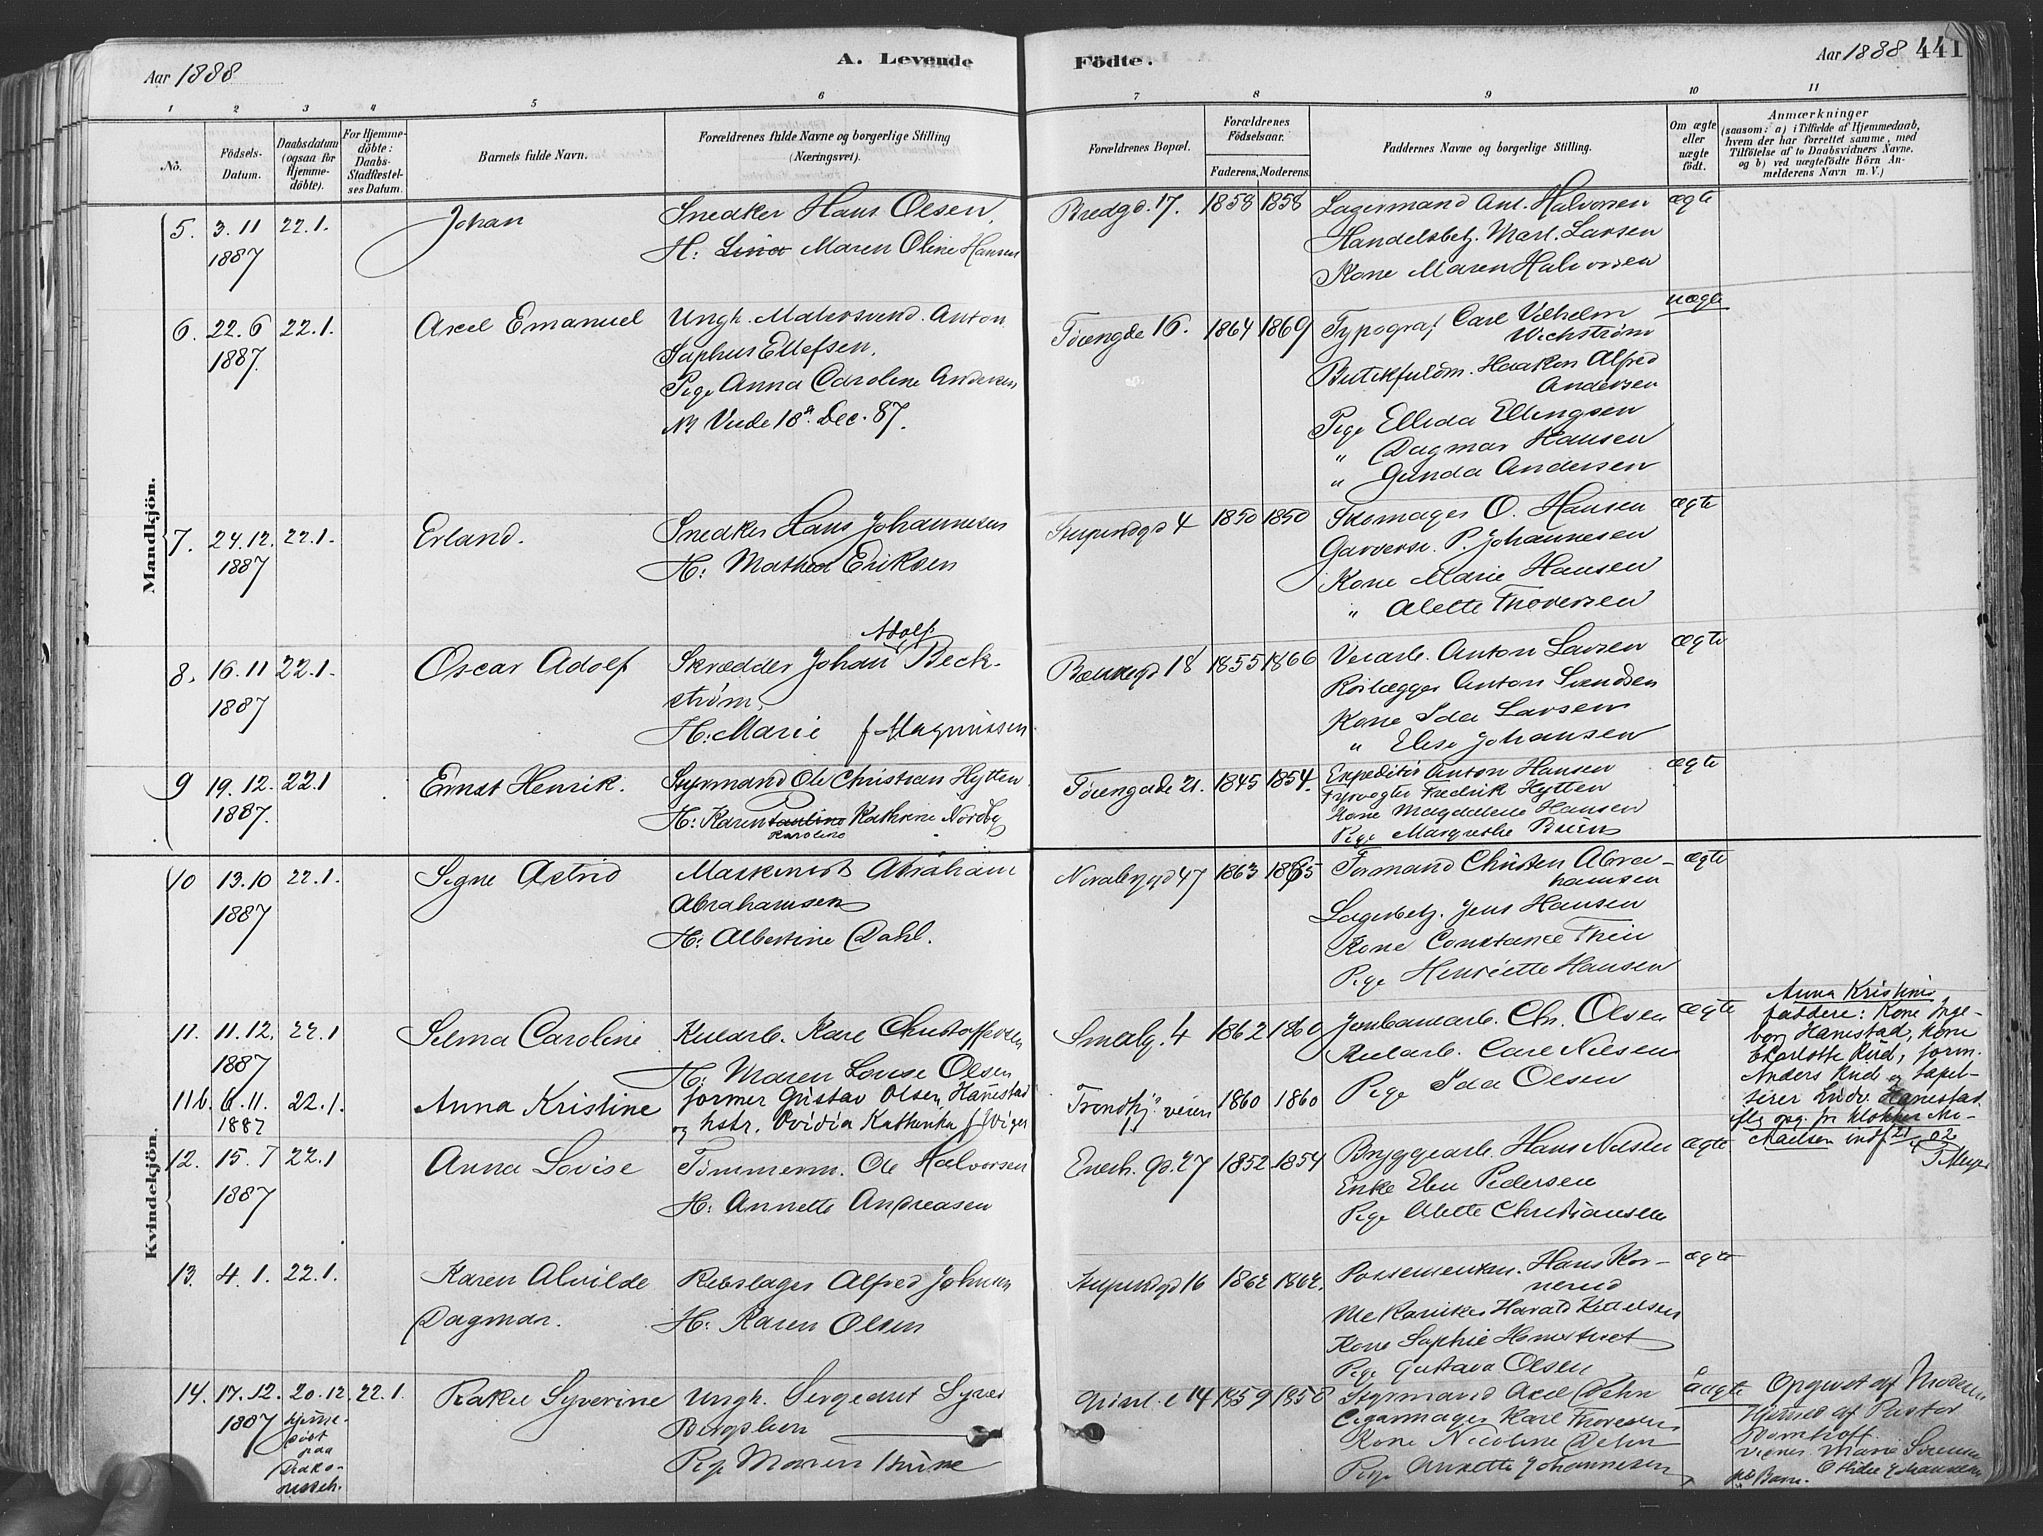 Aar 1888
A. Levende
Födte.
Aar 1888 441
1 2 3 4 5 6 7 8 9 10 11
No.
Födsels-
Datum.
Daabsdatum
(ogsaa for
Hjemme-
döbte).
For Hjemme-
döbte:
Daabs-
Stadfæstel-
ses Datum.
Barnets fulde Navn.
Forældrenes fulde Navne og borgerlige Stilling
(Næringsvei).
Forældrenes Bopæl.
Forældrenes
Födselsaar.
Faderens. Moderens.
Faddernes Navne og borgerlige Stilling.
Om ægte
eller
uægte
födt.
Anmærkninger
(saasom: a) i Tilfælde af Hjemmedaab,
hvem der har forrettet samme, med
Tilföielse af to Daabsvidners Navne,
og b) ved uægtefödte Börn An-
melderens Navn m. V.)
Mandkjön.
5. 3.11 22.1. Johan Snedker Hans Olsen. Bredgd. 17. 1858 1858 Lagermand Ant. Halvorsen ægte
1887 H: Lina Maren Oline Hansen Handelsbetj. Mart. Larsen
Kone Maren Halvorsen
6. 22.6 22.1. Axel Emanuel Ungk. Malersvend Anton Töiengde 16. 1864 1869 Typograf Carl Vilhelm uægte
1887. Sophus Ellefsen. Wickström
Pige Anna Caroline Andersen Butikfuldm. Haakon Alfred
Andersen
Viede 18 Dec. 87. Pige Elleda Ellingsen
" Dagmar Hansen
" Gunda Andersen
7. 24.12. 22.1. Erland. Snedker Hans Johannesen 4 1850 1850 O. Hansen ægte
1887 H: Mathea Eriksen P. Johannesen
Kone Marie Hansen
" Alette Thoversen
8. 16.11 22.1. Oscar Adolf Skrædder Johan Adolf Beck- 18 1855 1866 Anton Larsen ægte
1887 ström, Anton Svendsen
H: Marie f. Magnussen Kone Ida Larsen
" Elise Johansen
9 19.12. 22.1 Ernst Henrik. Styrmand Ole Christian Hytten Töiengade 21. 1845 1854. Expeditör Anton Hansen ægte
1887. H: Karen Paulina Kathrine Nordby Fyrvogter Fredrik Hytten
Karoline Kone Magdalene Hansen
Pige Margrethe Bruun
Kvindekjön.
10 13.10 22.1. Signe Astrid Maskinist Abraham 47 1863 1865 Formand Christen Abra- ægte
1887 Abrahamsen hamsen
H: Albertine Dahl. Lagerbetj. Jens Hansen
Kone Constance
Pige Henriette Hansen
11. 11.12. 22.1 Selma Caroline Karl Christoffersen Smalg. 4 1862 1860 Chr. Olsen ægte
1887 H: Maren Lovise Olsen Carl Nilsen
Pige Ida Olsen
Anna Kristines
faddere: Kone Inge-
borg Hanestad, kone
Charlotte Rud, form.
Anders Rud og tapet-
serer Ludv. Hanestad
iflg opg. fr. klokker Mi-
chaelsen indf 21/4 02
11b. 6.11. 22.1. Anna Kristine former Gustav Olsen Hanestad Trondhj. veien 1860 1860
1887 og hstr. Ovidia Kathinka f.
12. 15.7 22.1 Anna Lovise Tömmerm. Ole Halvorsen 27 1852 1854 Bryggearb. Hans Nilsen ægte
1887 H: Annette Andreasen Enke Pedersen
Pige Alette Christiansen
13. 4.1. 22.1. Karen Alvilde Rebslager Alfred Johnsen 16 1862 1862. Hans Kor- ægte
Dagmar. H: Karen Olsen nerud
Mekaniker Harald
Kone Sophie
Pige Gustava Olsen
14. 17.12. 20.12. 22.1. Rakel Syverine Ungk. Sergeant Syver 14 1859 1858 Styrmand Axel Dehn uægte Opgivet af Moderen
1887 hjemme- Bergsleen Cigarmager Karl Thoresen Hjemmed. af Pastor
döbt Pige Maren Kone Nicoline Dehn
paa Pige Annette Johannesen Marie